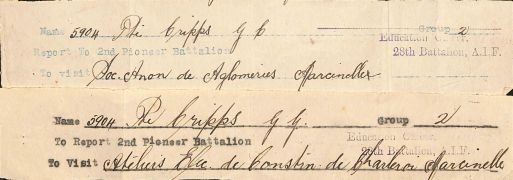 Name 5904 Pte Cripps G C Group 2
Education Officer,
Report To 2nd Pioneer Battalion
28th Battalion, A.I.F.
To visit Soc. Anon de Aglomeries Marcinelles
Name 5904 Pte Cripps G Y. Group 2
Education Officer,
To Report 2nd Pioneer Battalion
28th Battalion, A.I.F.
To Visit Ateliers Elec. de Constin de Charleroi Marcinelle